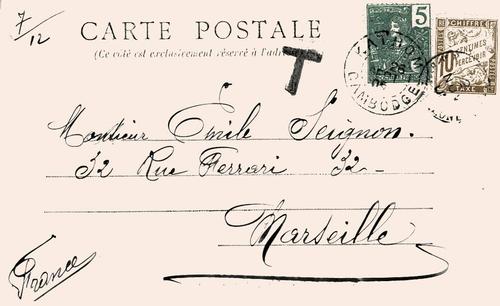 7/12
CARTE POSTALE
(Ce côté est exclusivement réservé à l'adresse)
T
5
KATDOM
26
CAMBODGE
CHIFFRE
10
CENTIMES
A PERCEVOIR
TAXE
Monsieur Emile Seignon.
32 Rue Ferrari 32 -
Marseille
France